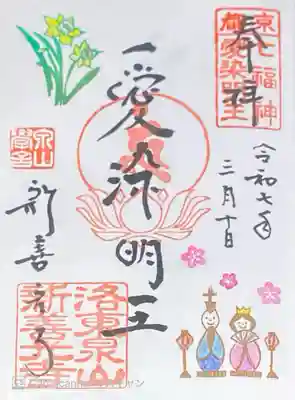 奉拝
京七福神
愛染明王
令和七年
三月十日
新善光寺
泉山
洛東泉山
新善光寺